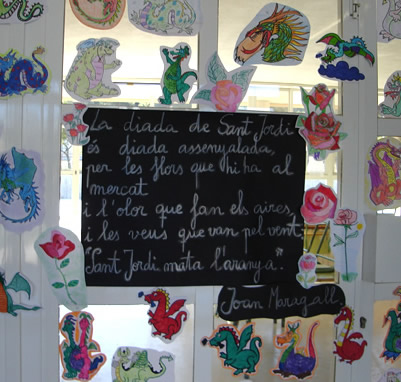 La diada de Sant Jordi
és diada assenyalada,
per les flors que hi ha al
mercat
i l'olor que fan els aires,
i les veus que van pel vent:
"Sant Jordi mata l'aranya."
Joan Maragall.